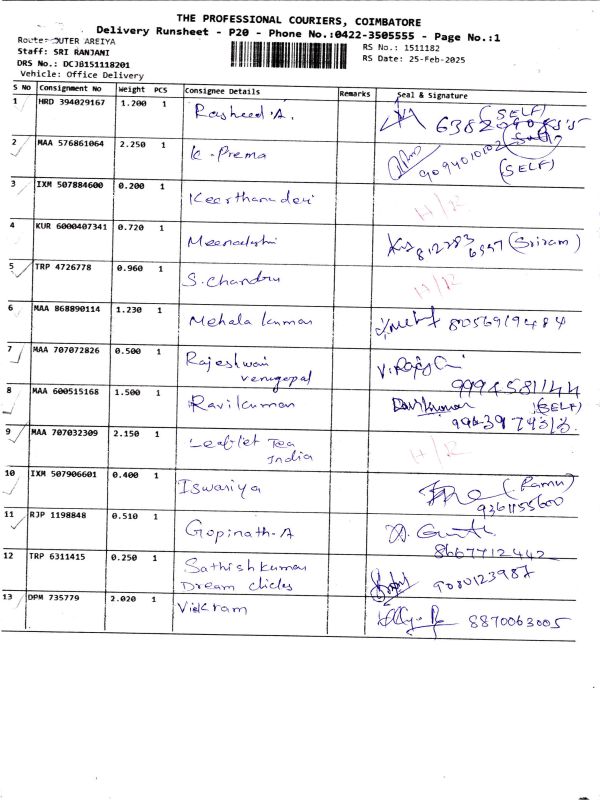 THE PROFESSIONAL COURIERS, COIMBATORE
Delivery Runsheet - P20 - Phone No.:0422-3505555 - Page No.:1
Route: OUTER AREIYA
Staff: SRI RANJANI
RS No.: 1511182
DRS No.: DCJB151118201
RS Date: 25-Feb-2025
Vehicle: Office Delivery
S No Consignment No Weight PCS Consignee Details Remarks Seal & Signature
1 HRD 394029167 1.200 1 Rasheed.A. (SELF)
2 MAA 576861064 2.250 1 K.Prema 9094010102 (SELF)
3 IXM 507884600 0.200 1 Keerthanadevi H/R
4 KUR 6000407341 0.720 1 Meenadshi (Sriram)
5 TRP 4726778 0.960 1 S.Chandru H/R
6 MAA 868890114 1.230 1 Mehala kumar 8056919484
7 MAA 707072826 0.500 1 Rajeshwari
venugopal 9994581144
8 MAA 600515168 1.500 1 Ravikumar (SELF)
9 MAA 707032309 2.150 1 Leaflet Tea
India H/R
10 IXM 507906601 0.400 1 Iswariya (Ramu)
9361155600
11 RJP 1198848 0.510 1 Gopinath-A
8667712442
12 TRP 6311415 0.250 1 Sathishkumar
Dream clicks 9080123987
13 DPM 735779 2.020 1 Vikram 8870063005